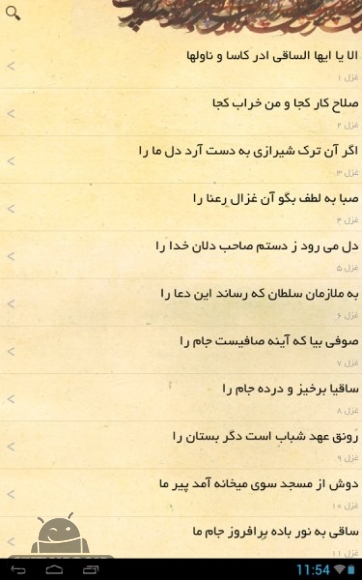 الا یا ایها الساقی ادر کاسا و ناولها
غزل ۱
صلاح کار کجا و من خراب کجا
غزل ۲
اگر آن ترک شیرازی به دست آرد دل ما را
غزل ۳
صبا به لطف بگو آن غزال رعنا را
غزل ۴
دل می رود ز دستم صاحب دلان خدا را
غزل ۵
به ملازمان سلطان که رساند این دعا را
غزل ۶
صوفی بیا که آینه صافیست جام را
غزل ۷
ساقیا برخیز و درده جام را
غزل ۸
رونق عهد شباب است دگر بستان را
غزل ۹
دوش از مسجد سوی میخانه آمد پیر ما
غزل ۱۰
ساقی به نور باده برافروز جام ما
غزل ۱۱
11:54